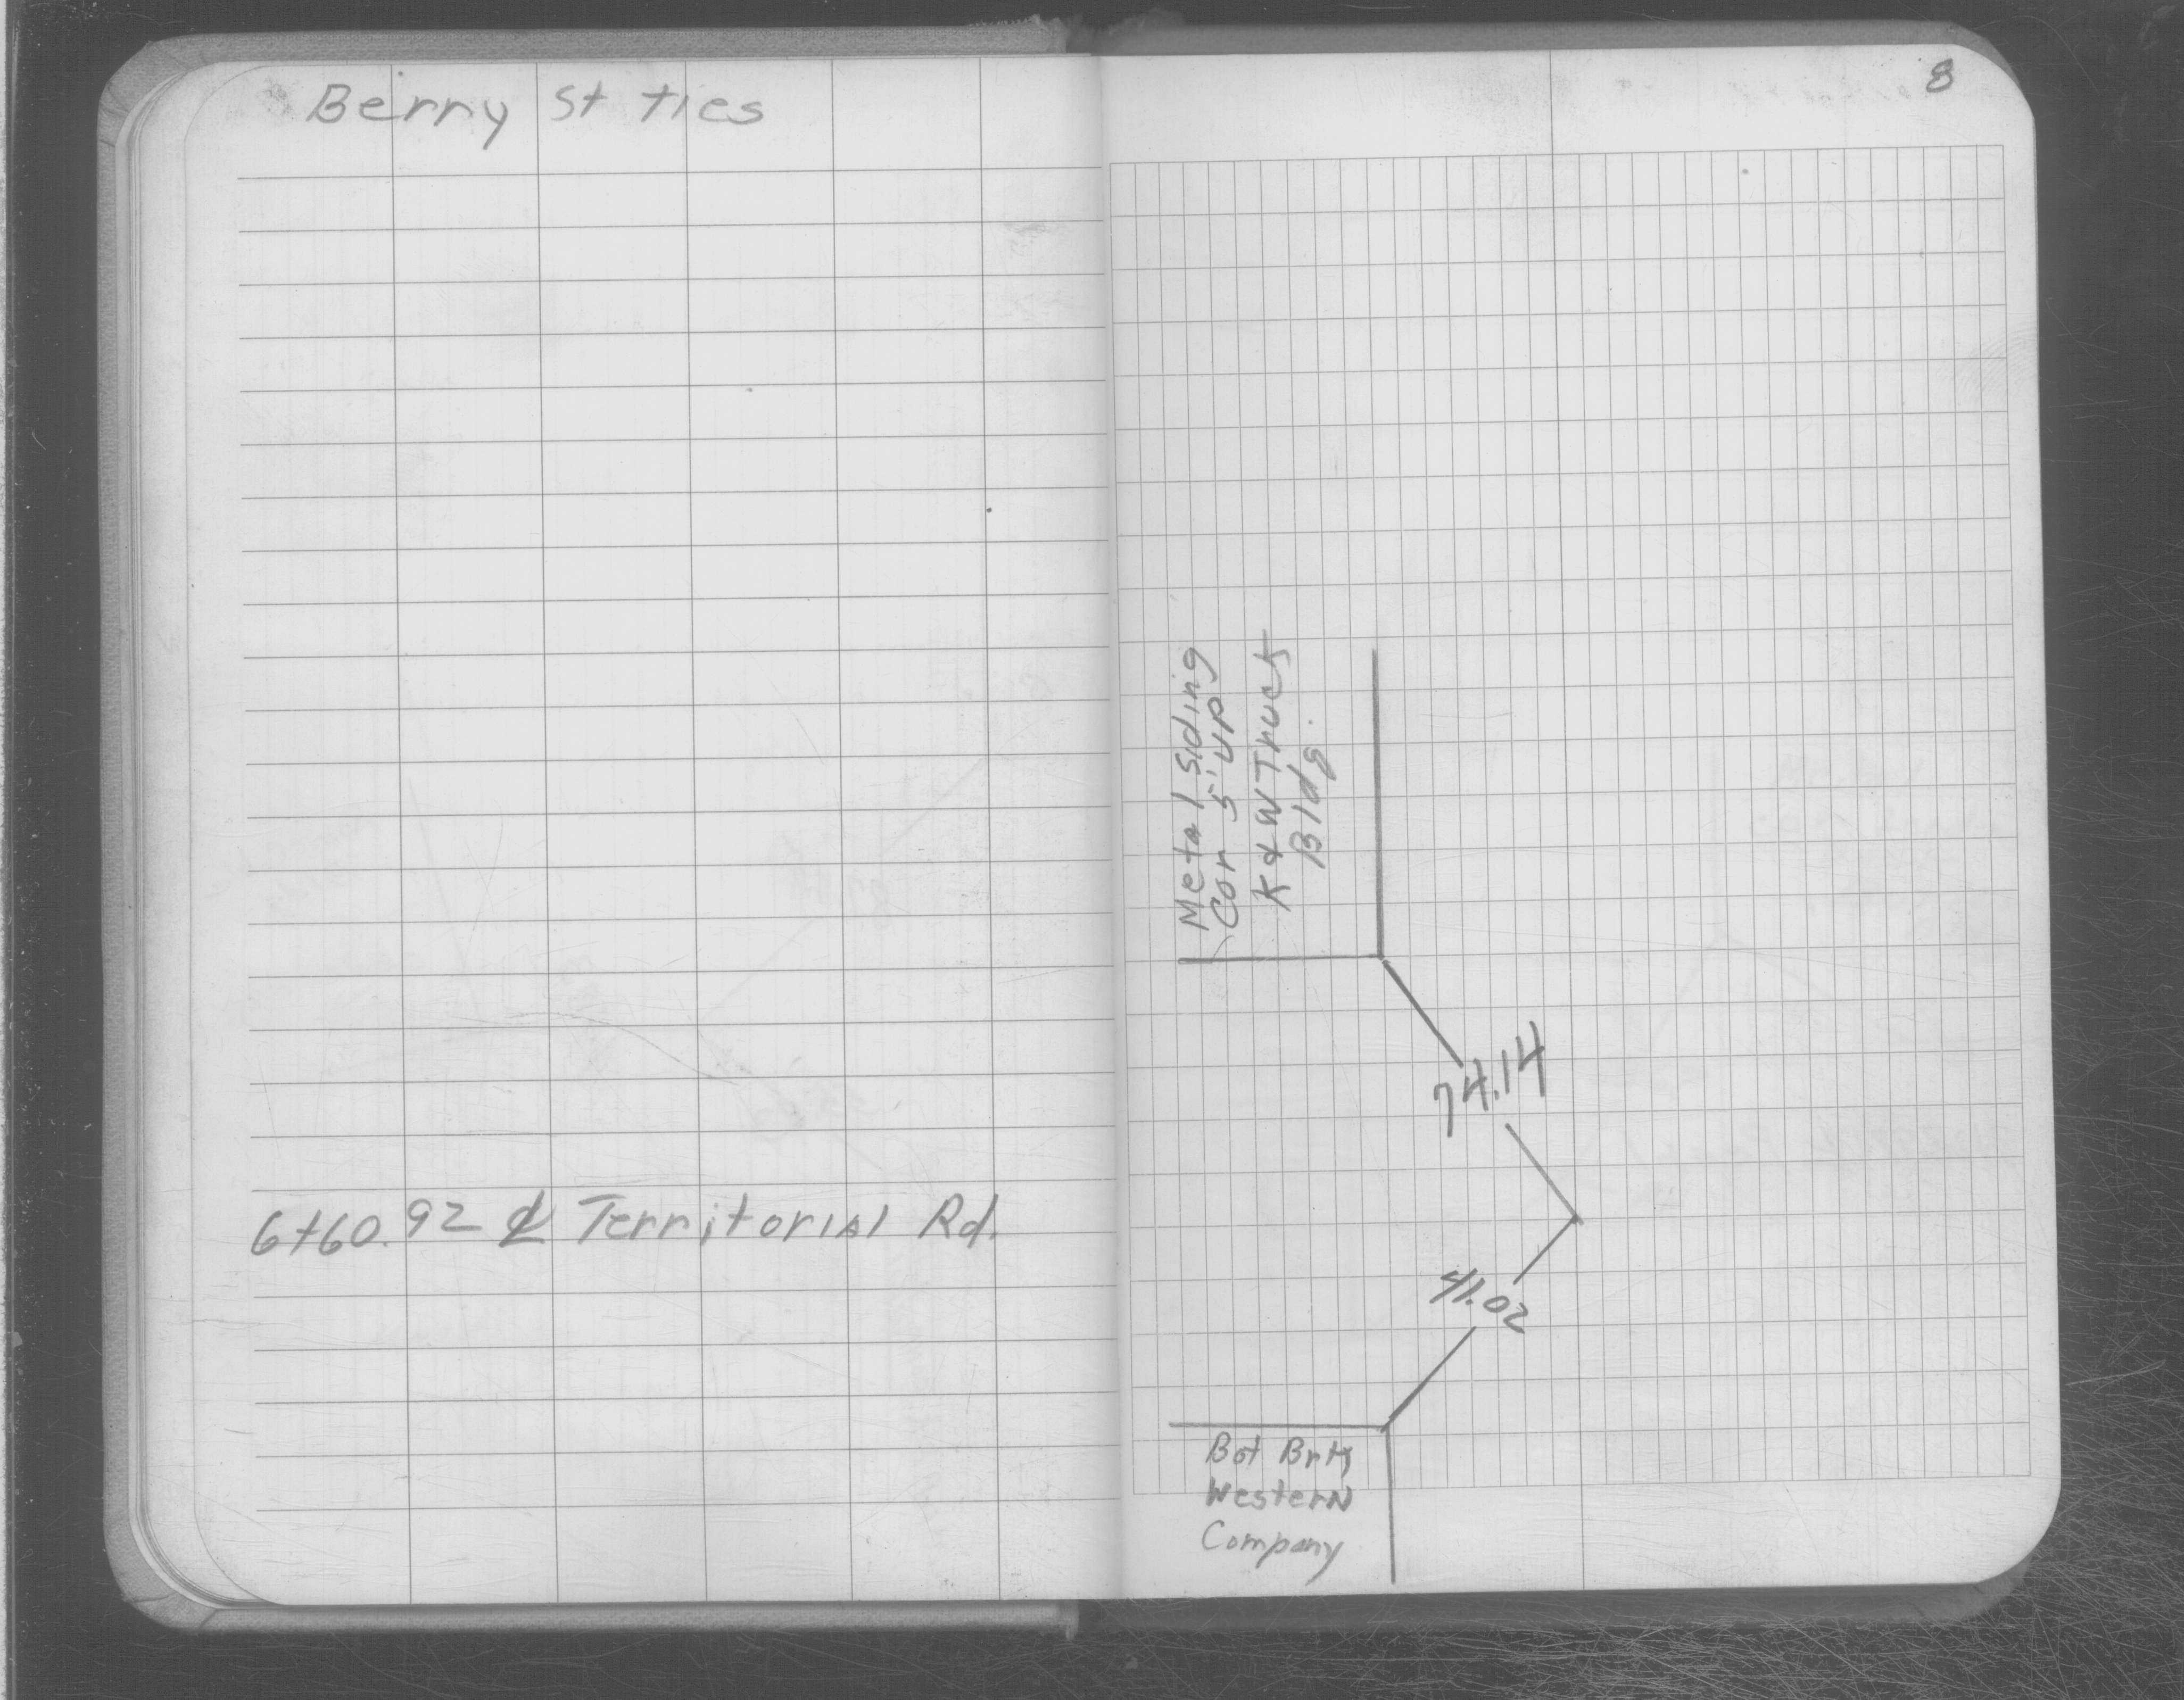 Berry St ties
6+60.92 ℄ Territorial Rd.
8
Metal Siding
Cor 5' up
K & W Truck
Bldg.
74.14
41.02
Bot Brk
Western
Company